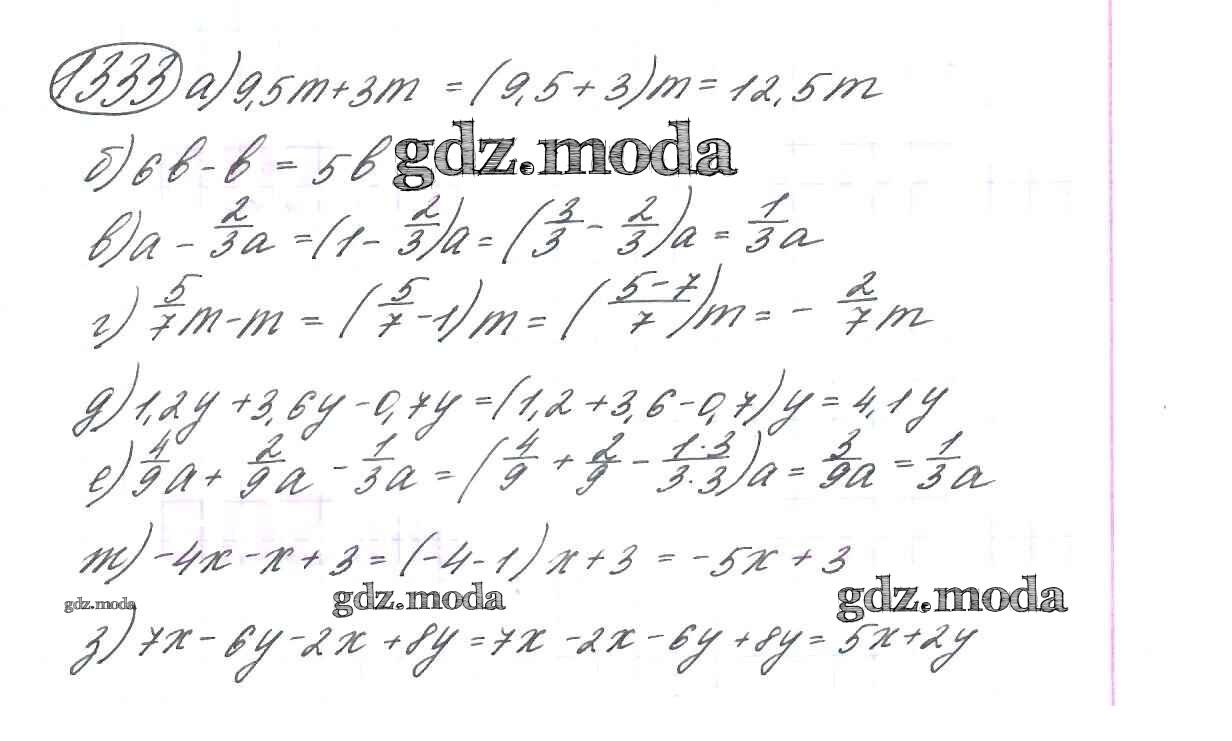 1333 а) 9,5m + 3m = (9,5 + 3)m = 12,5m
б) 6в - в = 5в gdz.moda
в) a - 2/3 a = (1 - 2/3)a = (3/3 - 2/3)a = 1/3 a
г) 5/7 m - m = (5/7 - 1)m = ((5-7)/7)m = - 2/7 m
д) 1,2y + 3,6y - 0,7y = (1,2 + 3,6 - 0,7)y = 4,1y
е) 4/9 a + 2/9 a - 1/3 a = (4/9 + 2/9 - (1·3)/(3·3))a = 3/9 a = 1/3 a
ж) -4x - x + 3 = (-4 - 1)x + 3 = -5x + 3
gdz.moda gdz.moda gdz.moda
з) 7x - 6y - 2x + 8y = 7x - 2x - 6y + 8y = 5x + 2y